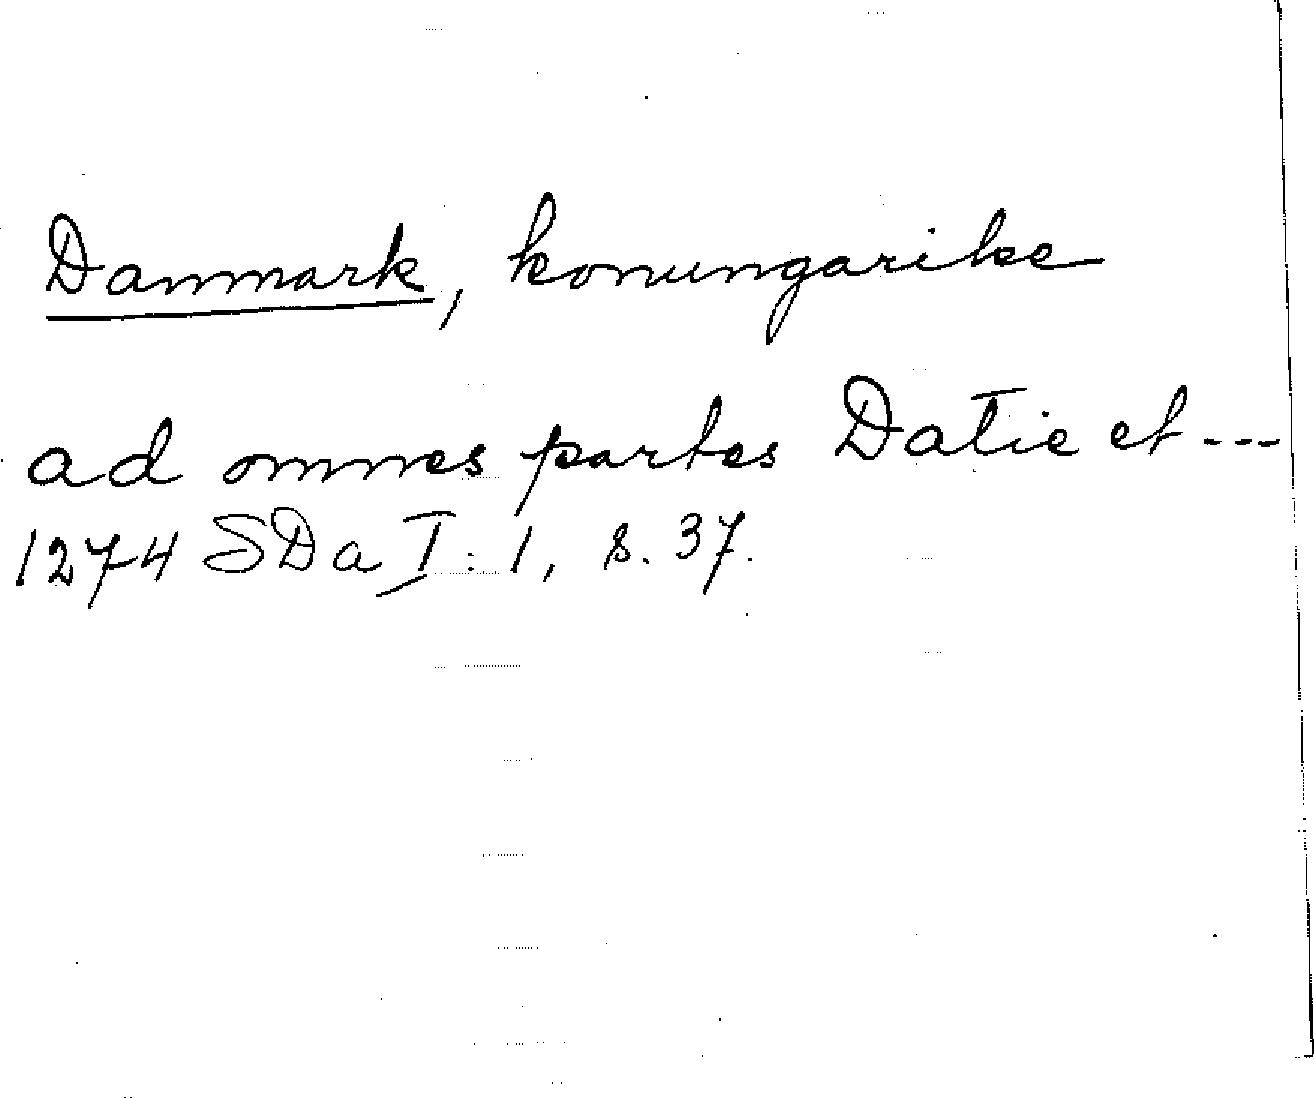 Danmark, konungarike
ad omnes partes Datie et ---
1274 SDa I: 1, s. 37.